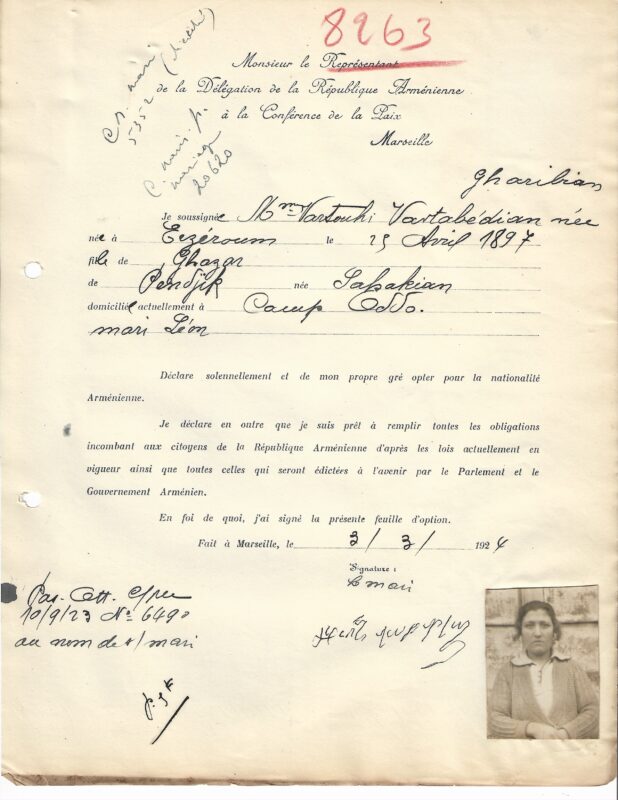 8263
Monsieur le Représentant
de la Délégation de la République Arménienne
à la Conférence de la Paix
Marseille
5352
mariage
20620
Gharibian
Je soussignée Mme Vartouhi Vartabédian née
née à Erzéroum le 25 Avril 1897
fille de Ghazar
de Pendjik née Sahakian
domiciliée actuellement à Camp Oddo.
mari Léon
Déclare solennellement et de mon propre gré opter pour la nationalité
Arménienne.
Je déclare en outre que je suis prêt à remplir toutes les obligations
incombant aux citoyens de la République Arménienne d'après les lois actuellement en
vigueur ainsi que toutes celles qui seront édictées à l'avenir par le Parlement et le
Gouvernement Arménien.
En foi de quoi, j'ai signé la présente feuille d'option.
Fait à Marseille, le 3/3/ 1924
Signature :
le mari
10/9/23 No 6490
au nom de s/ mari